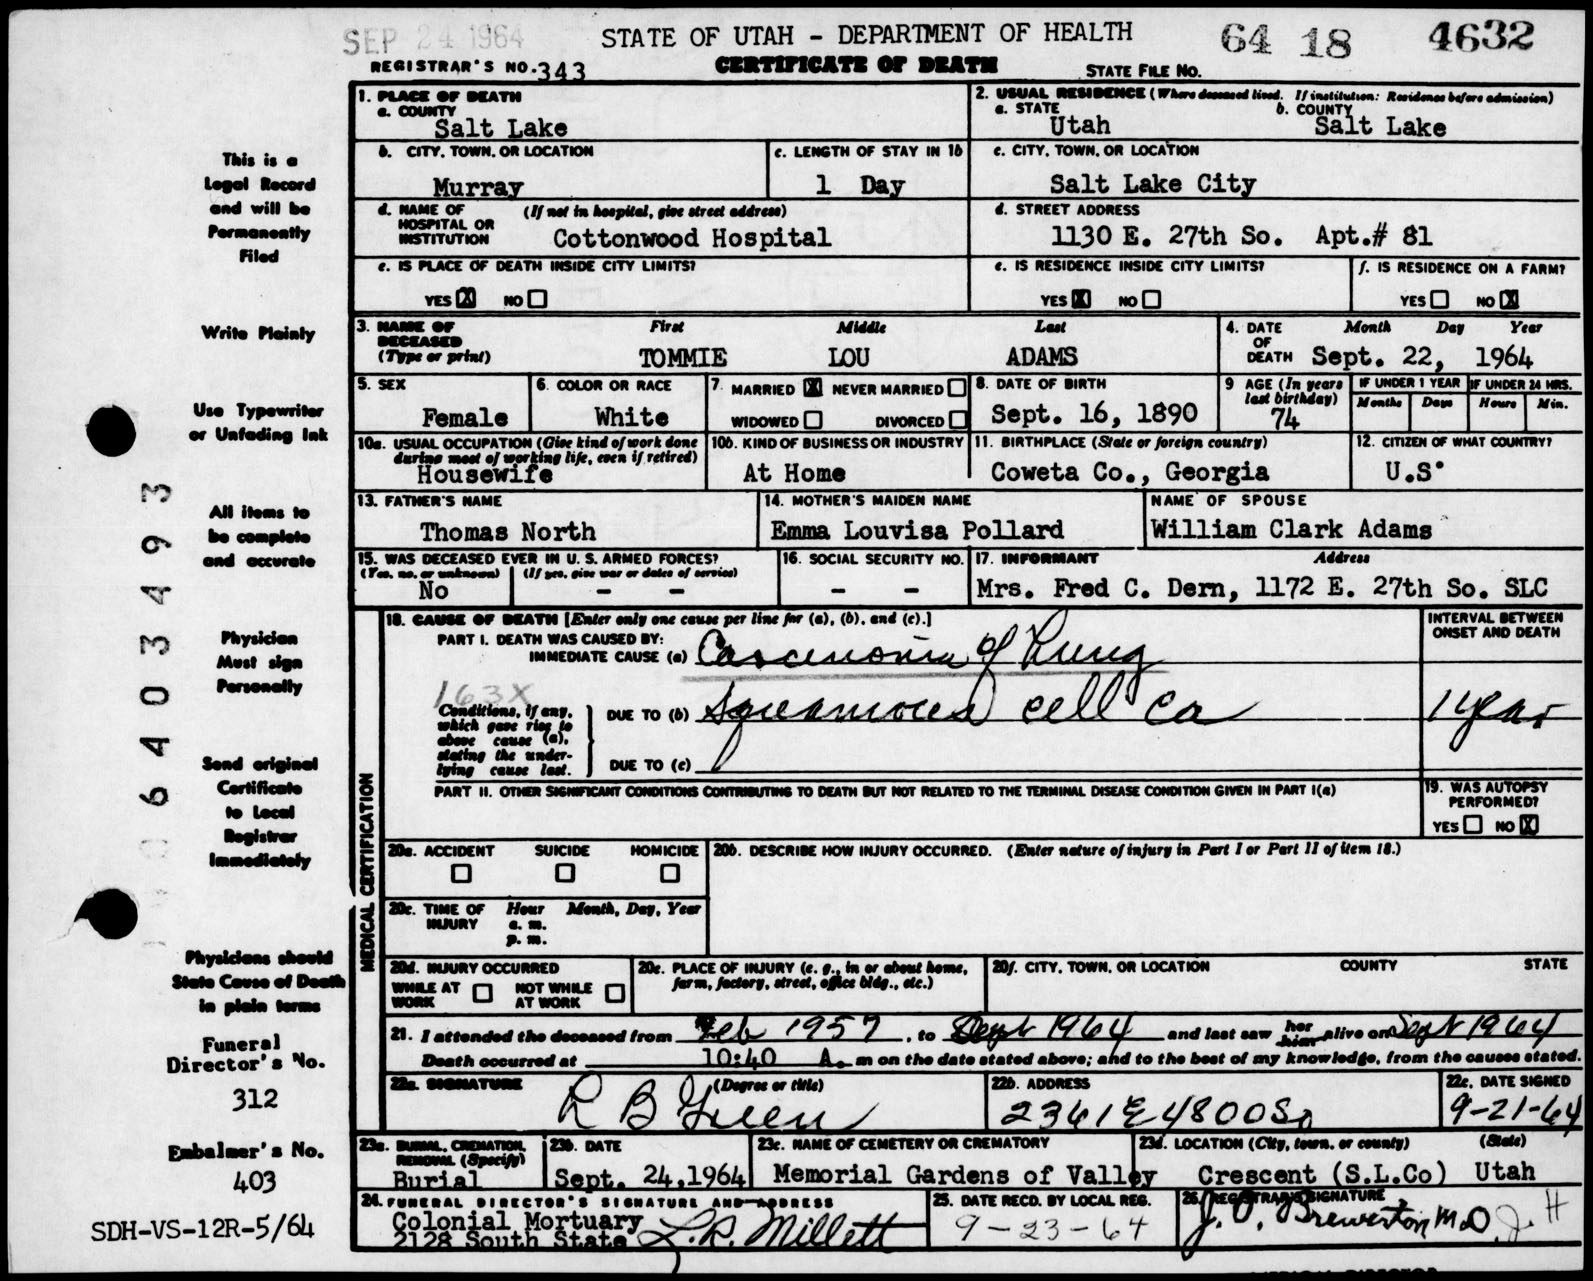 SEP 24 1964
STATE OF UTAH - DEPARTMENT OF HEALTH
64 18 4632
REGISTRAR'S NO. 343
CERTIFICATE OF DEATH
STATE FILE No.
1. PLACE OF DEATH
a. COUNTY
Salt Lake
2. USUAL RESIDENCE (Where deceased lived. If institution: Residence before admission)
a. STATE b. COUNTY
Utah Salt Lake
b. CITY, TOWN, OR LOCATION
Murray
c. LENGTH OF STAY IN 1b
1 Day
c. CITY, TOWN, OR LOCATION
Salt Lake City
d. NAME OF HOSPITAL OR INSTITUTION (If not in hospital, give street address)
Cottonwood Hospital
d. STREET ADDRESS
1130 E. 27th So. Apt.# 81
e. IS PLACE OF DEATH INSIDE CITY LIMITS?
YES X NO
e. IS RESIDENCE INSIDE CITY LIMITS?
YES X NO
f. IS RESIDENCE ON A FARM?
YES NO X
3. NAME OF DECEASED (Type or print)
First Middle Last
TOMMIE LOU ADAMS
4. DATE OF DEATH Month Day Year
Sept. 22, 1964
5. SEX
Female
6. COLOR OR RACE
White
7. MARRIED X NEVER MARRIED
WIDOWED DIVORCED
8. DATE OF BIRTH
Sept. 16, 1890
9 AGE (In years last birthday)
74
IF UNDER 1 YEAR IF UNDER 24 HRS.
Months Days Hours Min.
10a. USUAL OCCUPATION (Give kind of work done during most of working life, even if retired)
Housewife
10b. KIND OF BUSINESS OR INDUSTRY
At Home
11. BIRTHPLACE (State or foreign country)
Coweta Co., Georgia
12. CITIZEN OF WHAT COUNTRY?
U.S.
13. FATHER'S NAME
Thomas North
14. MOTHER'S MAIDEN NAME
Emma Louvisa Pollard
NAME OF SPOUSE
William Clark Adams
15. WAS DECEASED EVER IN U. S. ARMED FORCES?
(Yes, no, or unknown) (If yes, give war or dates of service)
No - -
16. SOCIAL SECURITY NO.
- -
17. INFORMANT Address
Mrs. Fred C. Dern, 1172 E. 27th So. SLC
MEDICAL CERTIFICATION
18. CAUSE OF DEATH [Enter only one cause per line for (a), (b), and (c).]
INTERVAL BETWEEN ONSET AND DEATH
PART I. DEATH WAS CAUSED BY:
IMMEDIATE CAUSE (a) Carcinoma of Lung
163X
Conditions, if any, which gave rise to above cause (a), stating the underlying cause last.
DUE TO (b) Squamous cell Ca 1 year
DUE TO (c)
PART II. OTHER SIGNIFICANT CONDITIONS CONTRIBUTING TO DEATH BUT NOT RELATED TO THE TERMINAL DISEASE CONDITION GIVEN IN PART I(a)
19. WAS AUTOPSY PERFORMED?
YES NO X
20a. ACCIDENT SUICIDE HOMICIDE
20b. DESCRIBE HOW INJURY OCCURRED. (Enter nature of injury in Part I or Part II of item 18.)
20c. TIME OF INJURY Hour Month, Day, Year
a. m.
p. m.
20d. INJURY OCCURRED
WHILE AT WORK NOT WHILE AT WORK
20e. PLACE OF INJURY (e. g., in or about home, farm, factory, street, office bldg., etc.)
20f. CITY, TOWN, OR LOCATION COUNTY STATE
21. I attended the deceased from Feb 1957, to Sept 1964 and last saw her him alive on Sept 1964
Death occurred at 10:40 A. m on the date stated above; and to the best of my knowledge, from the causes stated.
22a. SIGNATURE (Degree or title)
R B Green
22b. ADDRESS
2361 E 4800 So
22c. DATE SIGNED
9-21-64
23a. BURIAL, CREMATION, REMOVAL (Specify)
Burial
23b. DATE
Sept. 24, 1964
23c. NAME OF CEMETERY OR CREMATORY
Memorial Gardens of Valley
23d. LOCATION (City, town, or county) (State)
Crescent (S.L.Co) Utah
24. FUNERAL DIRECTOR'S SIGNATURE AND ADDRESS
Colonial Mortuary
2128 South State L.R. Millett
25. DATE RECD. BY LOCAL REG.
9-23-64
26. REGISTRAR'S SIGNATURE
J. P. Brewerton M.D. J. H
This is a
Legal Record
and will be
Permanently
Filed
Write Plainly
Use Typewriter
or Unfading Ink
All items to
be complete
and accurate
Physician
Must sign
Personally
Send original
Certificate
to Local
Registrar
Immediately
Physicians should
State Cause of Death
in plain terms
Funeral
Director's No.
312
Embalmer's No.
403
SDH-VS-12R-5/64
006403493